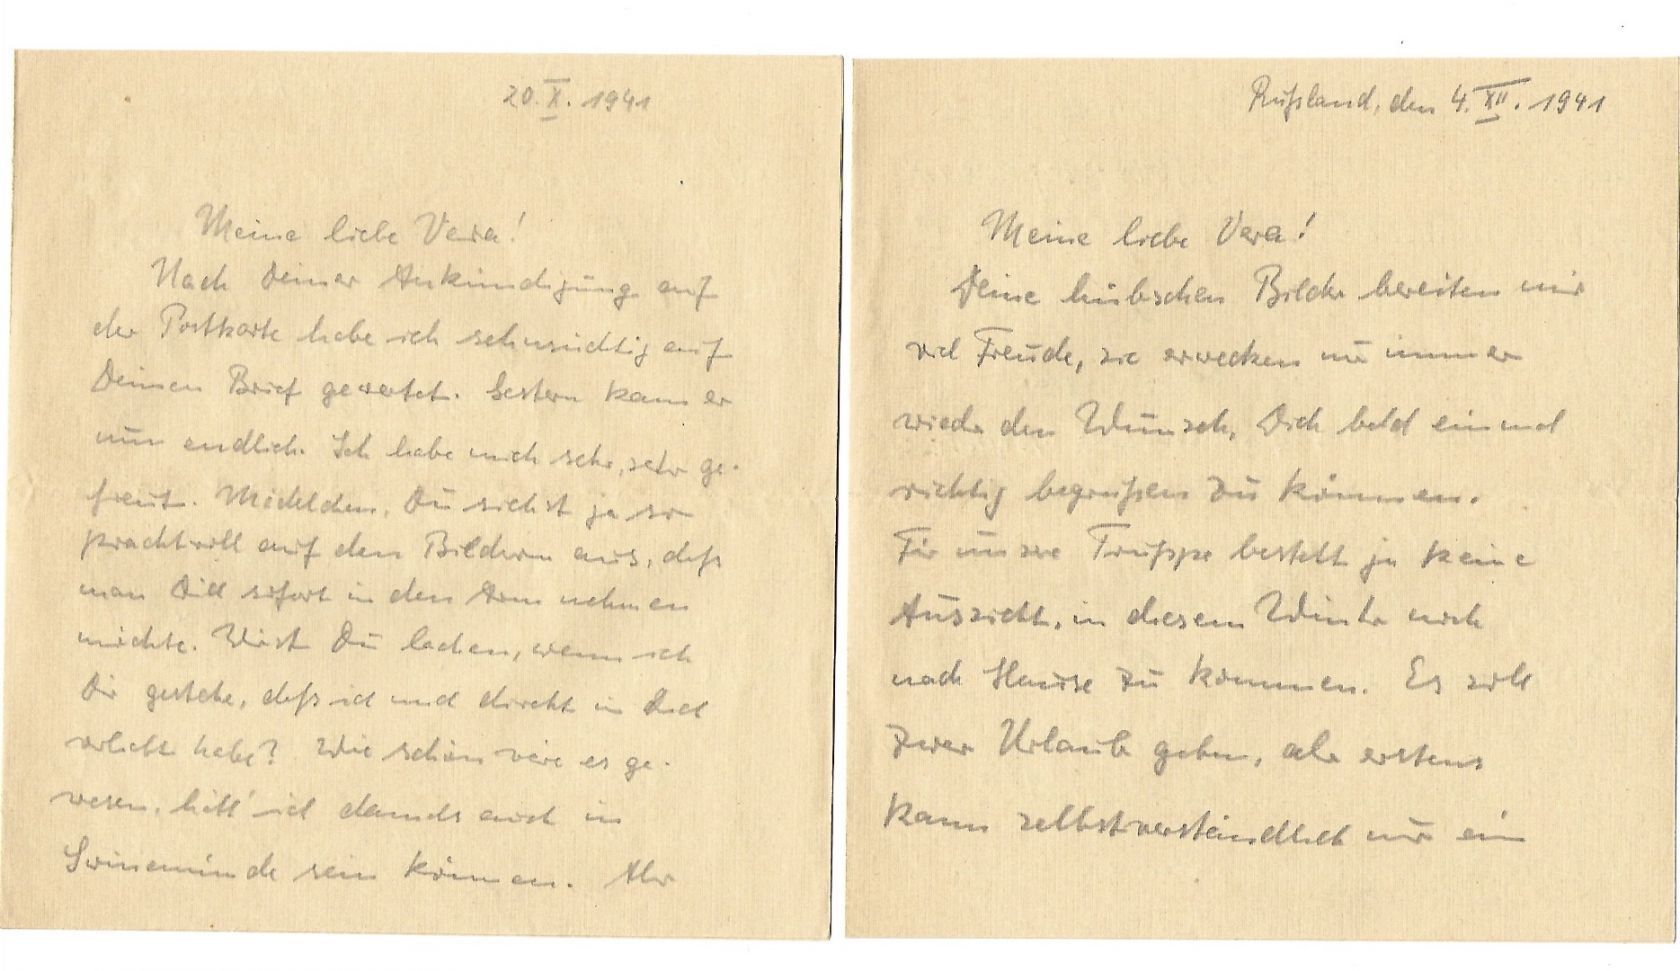 20. X. 1941
Meine liebe Vera!
Nach Deiner Ankündigung auf
der Postkarte habe ich sehnsüchtig auf
Deinen Brief gewartet. Gestern kam er
nun endlich. Ich habe mich sehr, sehr ge-
freut. Mädelchen, Du siehst ja so
prachtvoll auf den Bildern aus, daß
man Dich sofort in den Arm nehmen
möchte. Wirst Du lachen, wenn ich
Dir gestehe, daß ich mich direkt in Dich
verliebt habe? Wie schön wäre es ge-
wesen, hätt' ich damals auch in
Swinemünde sein können. Aber
Rußland, den 4. XII. 1941
Meine liebe Vera!
Deine hübschen Bilder bereiten mir
viel Freude, sie erwecken nur immer
wieder den Wunsch, Dich bald einmal
richtig begrüßen zu können.
Für unsere Truppe besteht ja keine
Aussicht, in diesem Winter noch
nach Hause zu kommen. Es soll
zwar Urlaub geben, aber erstens
kann selbstverständlich nur ein